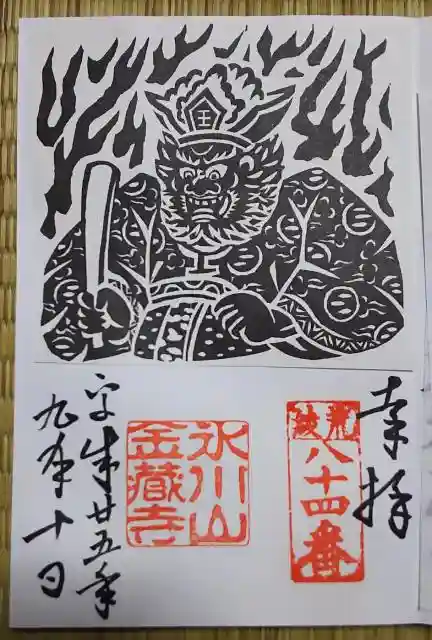 王
奉拝
荒綾
八十四番
氷川山
金藏寺
平成廿五年
九月十日